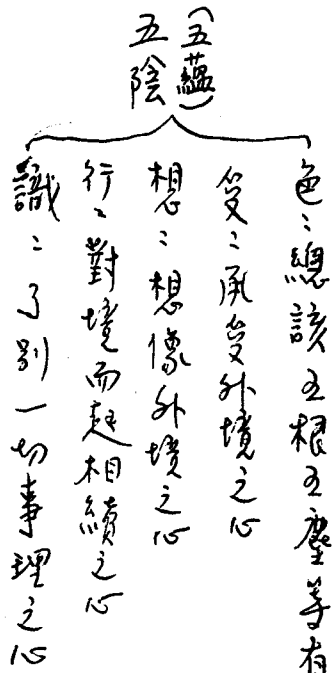 (五蘊)
五陰
色：總該五根五塵等有
受：承受外境之心
想：想像外境之心
行：對境而起相續之心
識：了別一切事理之心